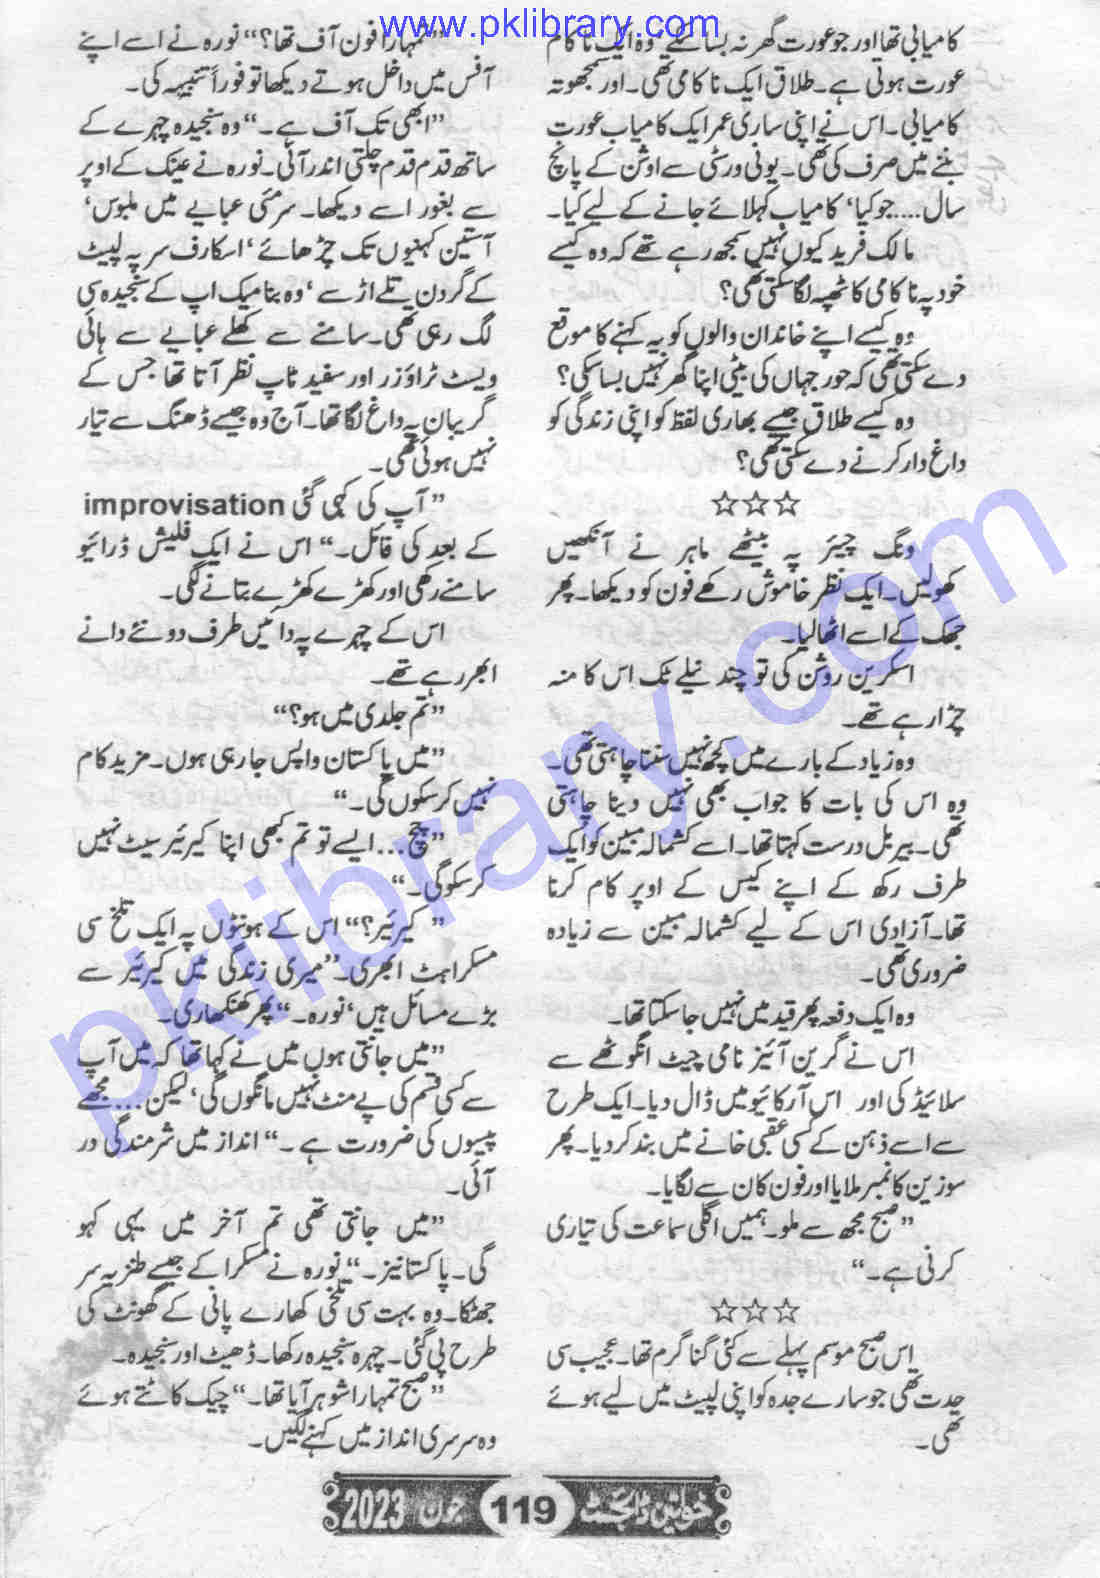 www.pklibrary.com
کامیابی تھا اور جو عورت گھر نہ بسا سکے‘ وہ ایک ناکام
عورت ہوتی ہے۔ طلاق ایک ناکامی تھی۔ اور سمجھوتہ
کامیابی۔ اس نے اپنی ساری عمر ایک کامیاب عورت
بننے میں صرف کی تھی۔ یونی ورسٹی سے اوشن کے پانچ
سال.... جو کیا‘ کامیاب کہلائے جانے کے لیے کیا۔
مالک فرید کیوں نہیں سمجھ رہے تھے کہ وہ کیسے
خود پہ ناکامی کا ٹھپہ لگا سکتی تھی؟
وہ کیسے اپنے خاندان والوں کو یہ کہنے کا موقع
دے سکتی تھی کہ حور جہاں کی بیٹی اپنا گھر نہیں بسا سکی؟
وہ کیسے طلاق جیسے بھاری لفظ کو اپنی زندگی کو
داغ دار کرنے دے سکتی تھی؟
☆☆☆
ونگ چیئر پہ بیٹھے ماہر نے آنکھیں
کھولیں۔ ایک نظر خاموش رکھے فون کو دیکھا۔ پھر
جھک کے اسے اٹھا لیا۔
اسکرین روشن کی تو چند نیلے ٹک اس کا منہ
چڑا رہے تھے۔
وہ زیاد کے بارے میں کچھ نہیں سننا چاہتی تھی۔
وہ اس کی بات کا جواب بھی نہیں دینا چاہتی
تھی۔ بیربل درست کہتا تھا۔ اسے کشمالہ مبین کو ایک
طرف رکھ کے اپنے کیس کے اوپر کام کرنا
تھا۔ آزادی اس کے لیے کشمالہ مبین سے زیادہ
ضروری تھی۔
وہ ایک دفعہ پھر قید میں نہیں جا سکتا تھا۔
اس نے گرین آئیز نامی چیٹ انگوٹھے سے
سلائیڈ کی اور اس آرکائیو میں ڈال دیا۔ ایک طرح
سے اسے ذہن کے کسی عقبی خانے میں بند کر دیا۔ پھر
سوزین کا نمبر ملایا اور فون کان سے لگایا۔
”صبح مجھ سے ملو۔ ہمیں اگلی سماعت کی تیاری
کرنی ہے۔“
☆☆☆
اس صبح موسم پہلے سے کئی گنا گرم تھا۔ عجیب سی
حدت تھی جو سارے جدہ کو اپنی لپیٹ میں لیے ہوئے
تھی۔
”تمہارا فون آف تھا؟“ نورہ نے اسے اپنے
آفس میں داخل ہوتے دیکھا تو فوراً تنبیہہ کی۔
”ابھی تک آف ہے۔“ وہ سنجیدہ چہرے کے
ساتھ قدم قدم چلتی اندر آئی۔ نورہ نے عینک کے اوپر
سے بغور اسے دیکھا۔ سرمئی عبایے میں ملبوس‘
آستین کہنیوں تک چڑھائے‘ اسکارف سر پہ لپیٹ
کے گردن تلے اڑسے‘ وہ بنا میک اپ کے سنجیدہ سی
لگ رہی تھی۔ سامنے سے کھلے عبایے سے ہائی
ویسٹ ٹراؤزر اور سفید ٹاپ نظر آتا تھا جس کے
گریبان پہ داغ لگا تھا۔ آج وہ جیسے ڈھنگ سے تیار
نہیں ہوئی تھی۔
”آپ کی کہی گئی improvisation
کے بعد کی فائل۔“ اس نے ایک فلیش ڈرائیو
سامنے رکھی اور کھڑے کھڑے بتانے لگی۔
اس کے چہرے پہ دائیں طرف دو نئے دانے
ابھر رہے تھے۔
”تم جلدی میں ہو؟“
”میں پاکستان واپس جا رہی ہوں۔ مزید کام
نہیں کر سکوں گی۔“
”چچ... ایسے تو تم کبھی اپنا کیرئیر سیٹ نہیں
کر سکو گی۔“
”کیرئیر؟“ اس کے ہونٹوں پہ ایک تلخ سی
مسکراہٹ ابھری۔ ”میری زندگی میں کیرئیر سے
بڑے مسائل ہیں‘ نورہ۔“ پھر کھنکھاری۔
”میں جانتی ہوں میں نے کہا تھا کہ میں آپ
سے کسی قسم کی پے منٹ نہیں مانگوں گی‘ لیکن.... مجھے
پیسوں کی ضرورت ہے۔“ انداز میں شرمندگی در
آئی۔
”میں جانتی تھی تم آخر میں یہی کہو
گی۔ پاکستانیز۔“ نورہ نے مسکرا کے جیسے طنزیہ سر
جھٹکا۔ وہ بہت سی تلخی کھارے پانی کے گھونٹ کی
طرح پی گئی۔ چہرہ سنجیدہ رکھا۔ ڈھیٹ اور سنجیدہ۔
”صبح تمہارا شوہر آیا تھا۔“ چیک کاٹتے ہوئے
وہ سرسری انداز میں کہنے لگیں۔
خواتین ڈائجسٹ 119 جون 2023
pklibrary.com